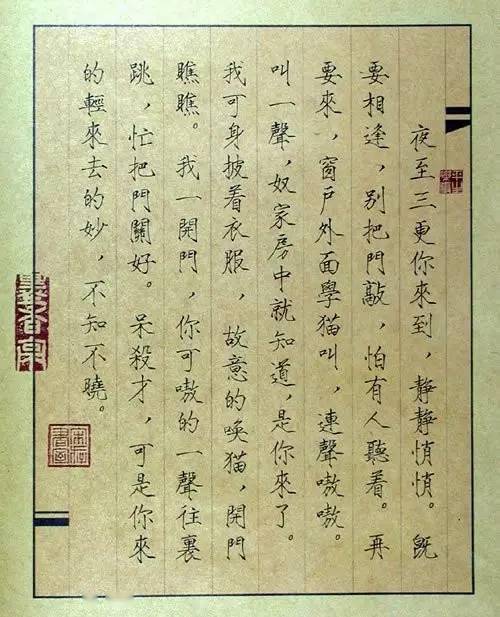 夜至三更你來到，靜靜悄悄。既
要相逢，别把門敲，怕有人聽着。再
要來，窗戶外面學猫叫，連聲嗷嗷。
叫一聲，奴家房中就知道，是你來了。
我可身披着衣服，故意的喚猫，開門
瞧瞧。我一開門，你可嗷的一聲往裏
跳，忙把門關好。呆殺才，可是你來
的輕來去的妙，不知不曉。